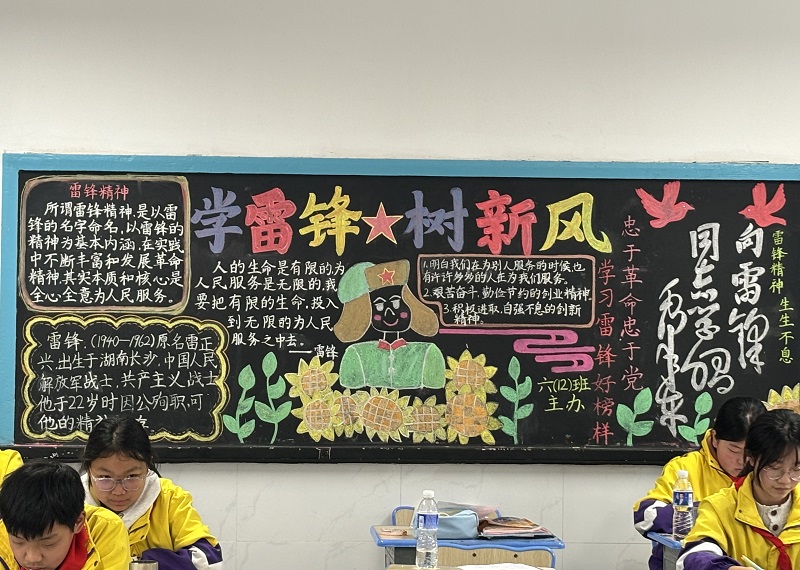 学雷锋★树新风
雷锋精神
所谓雷锋精神,是以雷
锋的名字命名,以雷锋的
精神为基本内涵,在实践
中不断丰富和发展革命
精神,其实本质和核心是
全心全意为人民服务。
雷锋,(1940—1962)原名雷正
兴,出生于湖南长沙,中国人民
解放军战士,共产主义战士
他于22岁时因公殉职,可
他的精
人的生命是有限的为
人民服务是无限的,我
要把有限的生命,投入
到无限的为人民
服务之中去。
——雷锋
1.明白我们在为别人服务的时候,也
有许许多多的人在为我们服务。
2.艰苦奋斗,勤俭节约的创业精神.
3.积极进取,自强不息的创新
精神。
六(12)班
主办
忠于革命忠于党
学习雷锋好榜样
向雷锋
同志学习
毛泽东
雷锋精神 生生不息